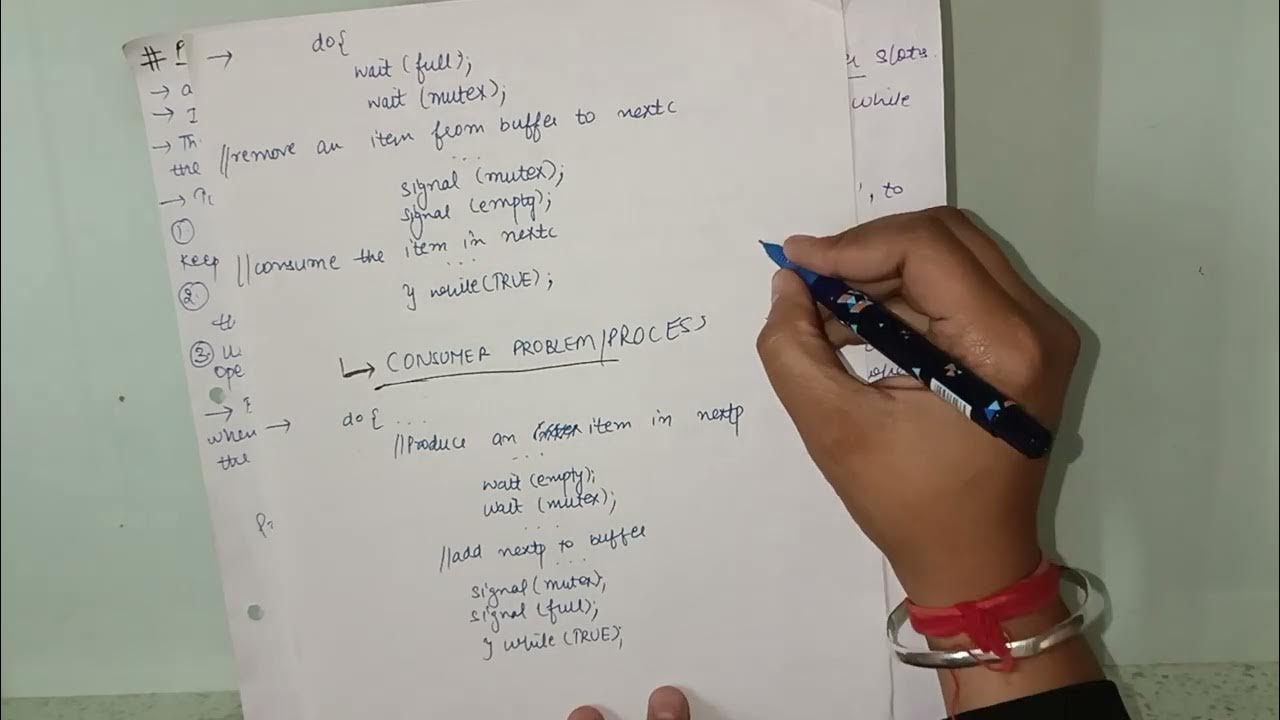 # P → do{
→ a wait (full);
→ I wait (mutex);
→ Th
the //remove an item from buffer to nextc
...
signal (mutex);
① signal (empty);
keep //consume the item in nextc
...
② } while(TRUE);
③
ope
↳ CONSUMER PROBLEM/PROCESS
when → do{ ...
the //Produce an item in nextp
...
wait (empty);
wait (mutex);
...
//add nextp to buffer
...
signal (mutex);
signal (full);
} while (TRUE);
slots.
while
', to